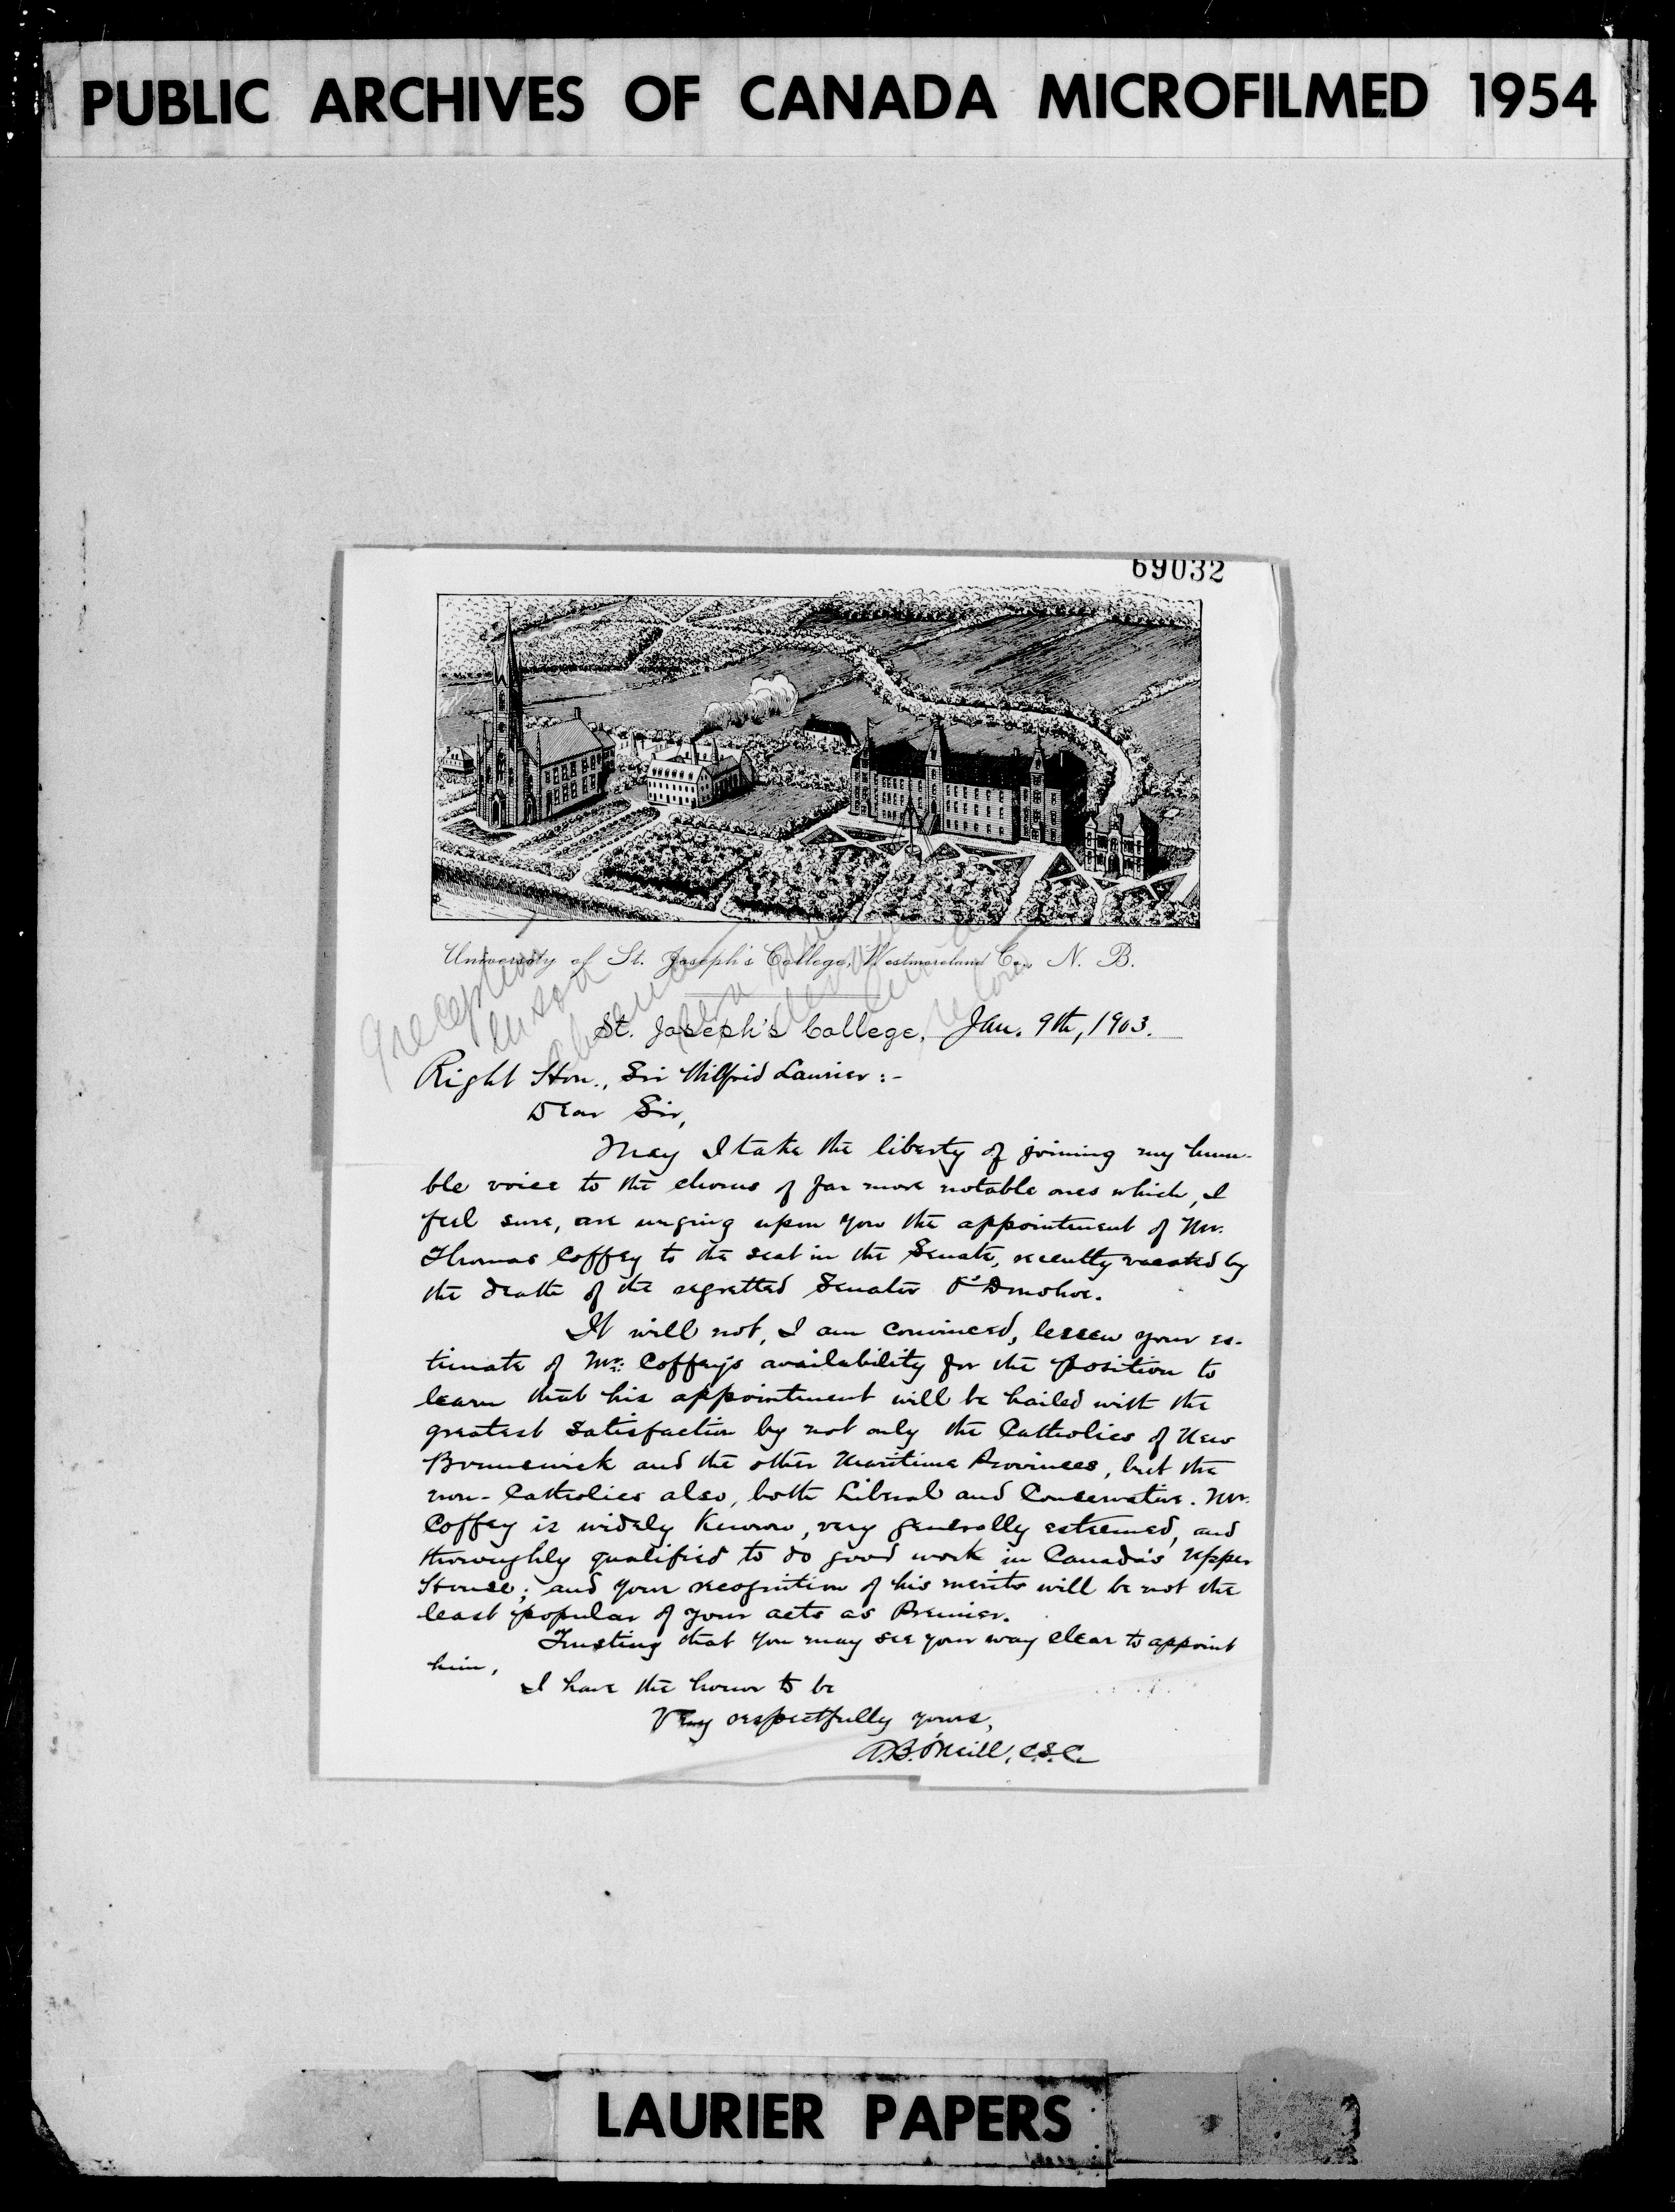 PUBLIC ARCHIVES OF CANADA MICROFILMED 1954
69032
University of St. Joseph's College, Westmoreland Co., N. B.
St. Joseph's College, Jan. 9th, 1903.
Right Hon., Sir Wilfrid Laurier:-
Dear Sir,
May I take the liberty of joining my hum-
ble voice to the chorus of far more notable ones which, I
feel sure, are urging upon you the appointment of Mr.
Thomas Coffey to the seat in the Senate, recently vacated by
the death of the regretted Senator O'Donohoe.
It will not, I am convinced, lessen your es-
timate of Mr. Coffey's availability for the position to
learn that his appointment will be hailed with the
greatest satisfaction by not only the Catholics of New
Brunswick and the other Maritime Provinces, but the
non-Catholics also, both Liberal and Conservative. Mr.
Coffey is widely known, very generally esteemed, and
thoroughly qualified to do good work in Canada's Upper
House; and your recognition of his merits will be not the
least popular of your acts as Premier.
Trusting that you may see your way clear to appoint
him,
I have the honor to be
Very respectfully yours,
A.B. O'Neill, C.S.C.
LAURIER PAPERS